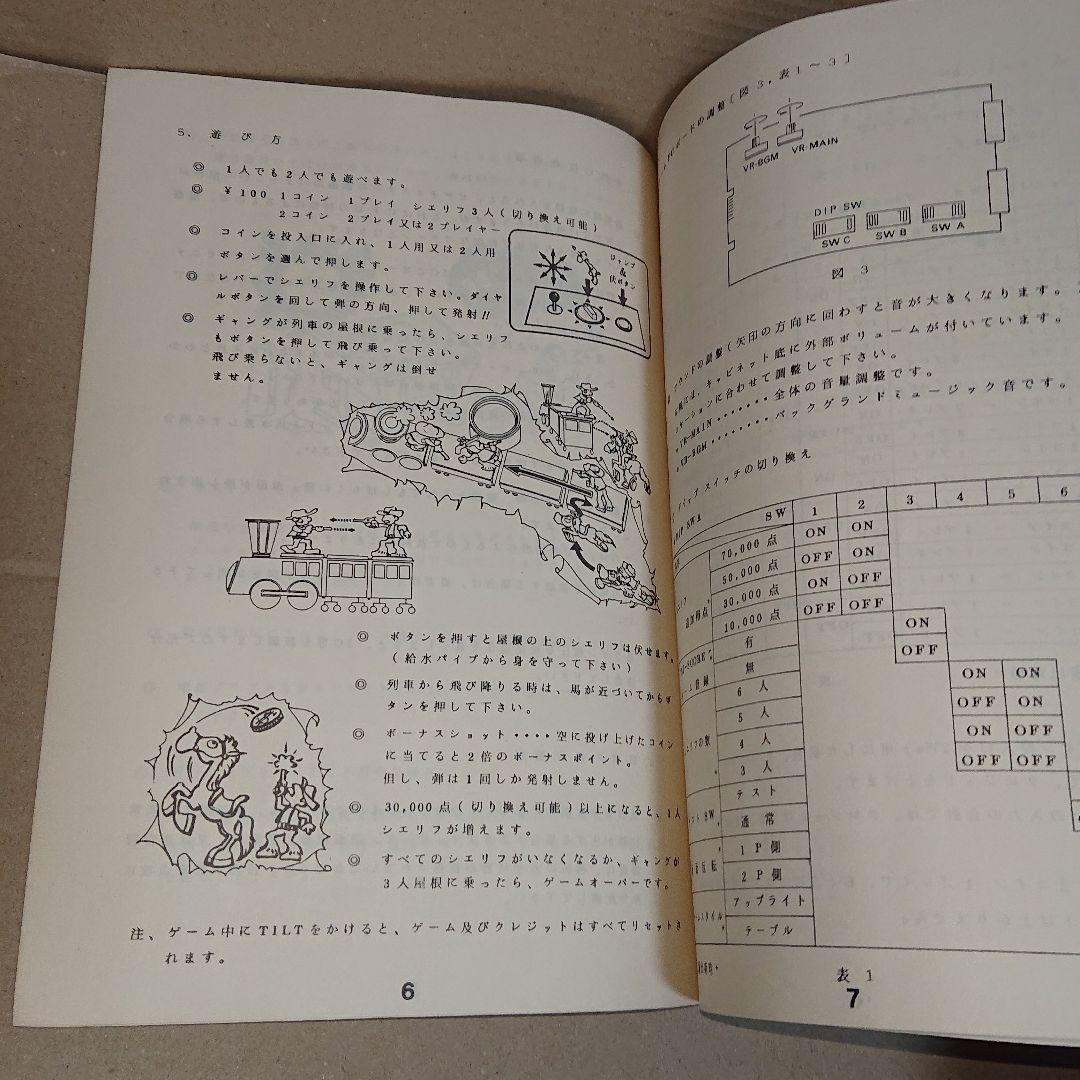 5、 遊 び 方
◎ 1人でも2人でも遊べます。
◎ ¥100 1コイン 1プレイ シェリフ3人(切り換え可能)
2コイン 2プレイ又は2プレイヤー
◎ コインを投入口に入れ、1人用又は2人用
ボタンを選んで押します。
◎ レバーでシェリフを操作して下さい。ダイヤ
ルボタンを回して弾の方向、押して発射!!
◎ ギャングが列車の屋根に乗ったら、シェリフ
もボタンを押して飛び乗って下さい。
飛び乗らないと、ギャングは倒せ
ません。
ジャンプ
&
伏ボタン
◎ ボタンを押すと屋根の上のシェリフは伏せます。
(給水パイプから身を守って下さい)
◎ 列車から飛び降りる時は、馬が近づいてからボ
タンを押して下さい。
◎ ボーナスショット・・・・空に投げ上げたコイン
に当てると2倍のボーナスポイント。
但し、弾は1回しか発射しません。
◎ 30,000点(切り換え可能)以上になると、1人
シェリフが増えます。
◎ すべてのシェリフがいなくなるか、ギャングが
3人屋根に乗ったら、ゲームオーバーです。
注、 ゲーム中にTILTをかけると、ゲーム及びクレジットはすべてリセットさ
れます。
6
ボードの調整〔図3,表1~3〕
VR-BGM VR-MAIN
DIP SW
SW C SW B SW A
図 3
の調整(矢印の方向に回わすと音が大きくなります。
には、キャビネット底に外部ボリュームが付いています。
ションに合わせて調整して下さい。
VR-MAIN・・・・・・・全体の音量調整です。
VR-BGM・・・・・・・・バックグランドミュージック音です。
スイッチの切り換え
DIP SWA SW 1 2 3 4 5 6
追加得点 70,000点 ON ON
50,000点 OFF ON
30,000点 ON OFF
10,000点 OFF OFF
有 ON
登録 無 OFF
の数 6人 ON ON
5人 OFF ON
4人 ON OFF
3人 OFF OFF
SW テスト
通常
反転 1P側
2P側
スタイル アップライト
テーブル
表 1
7